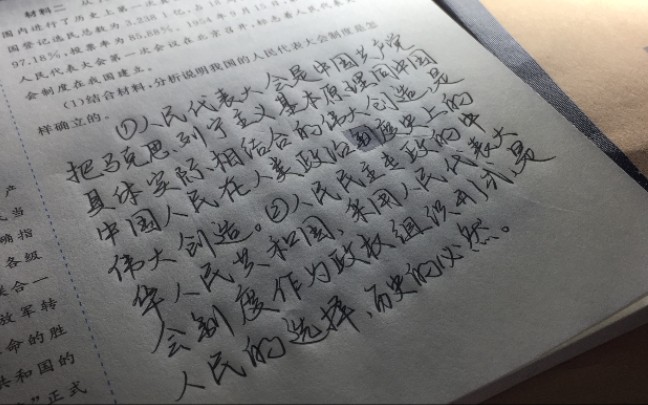 材料二
国内进行了历史上第一次
国登记选民总数为3.238 1亿，占18
97.18%，投票率为85.88%。1954年9月15日，
人民代表大会第一次会议在北京召开，标志着人民代表大
会制度在我国建立。
(1)结合材料，分析说明我国的人民代表大会制度是怎
样确立的。
①人民代表大会是中国共产党
把马克思、列宁主义基本原理同中国
具体实际相结合的伟大创造，是
中国人民在人类政治制度史上的
伟大创造。②人民民主专政的中
华人民共和国，采用人民代表大
会制度作为政权组织形式，是
人民的选择，历史的必然。
产
大当
确指
各级
联合一
放军转
革命的胜
共和国的
”正式